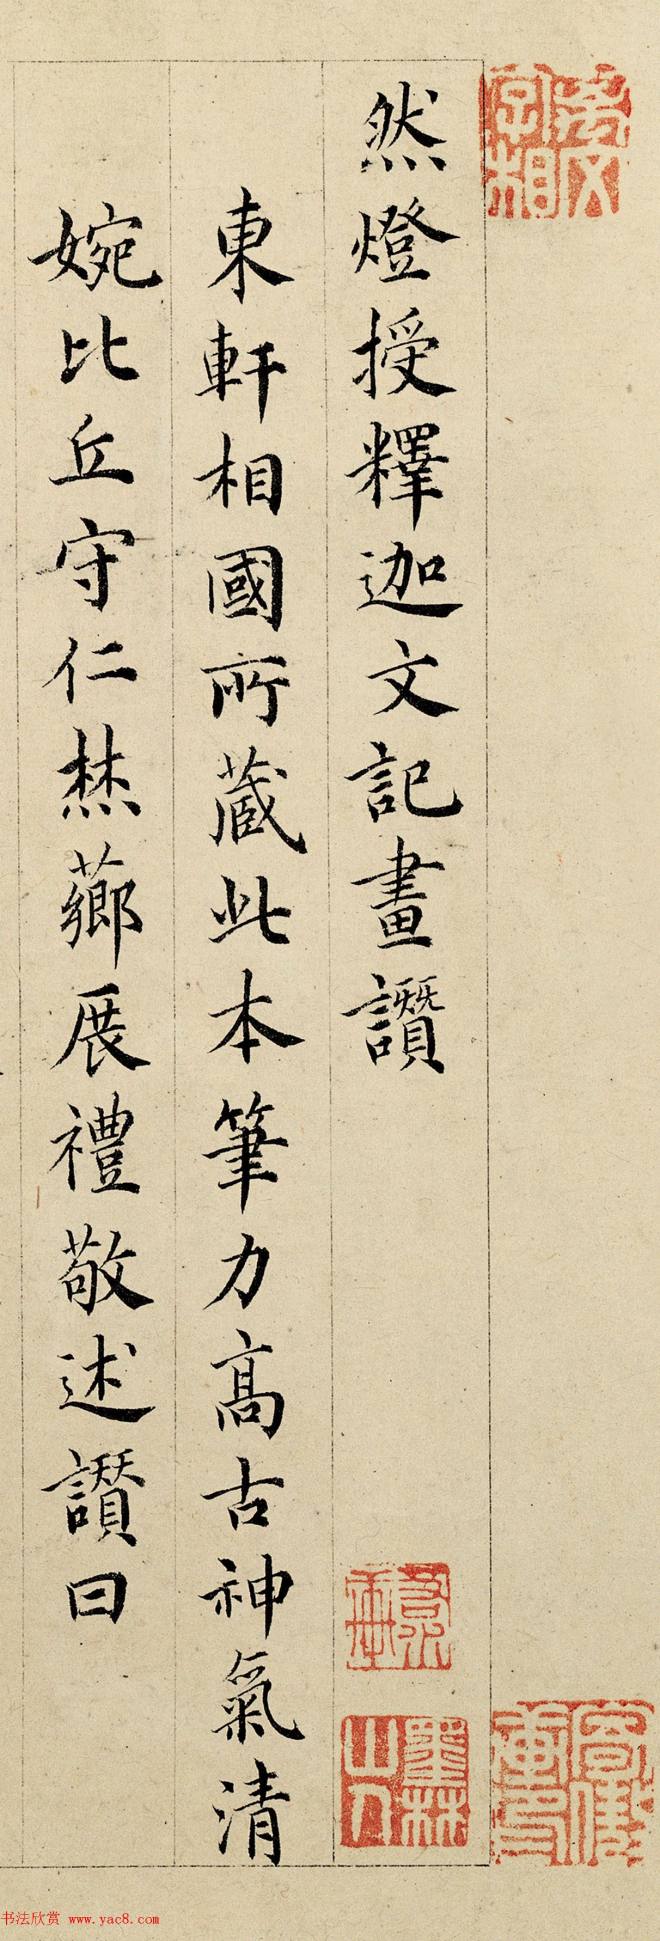 然燈授釋迦文記畫讚
東軒相國所藏此本筆力高古神氣清
婉比丘守仁焚薌展禮敬述讚曰
书法欣赏 www.yac8.com